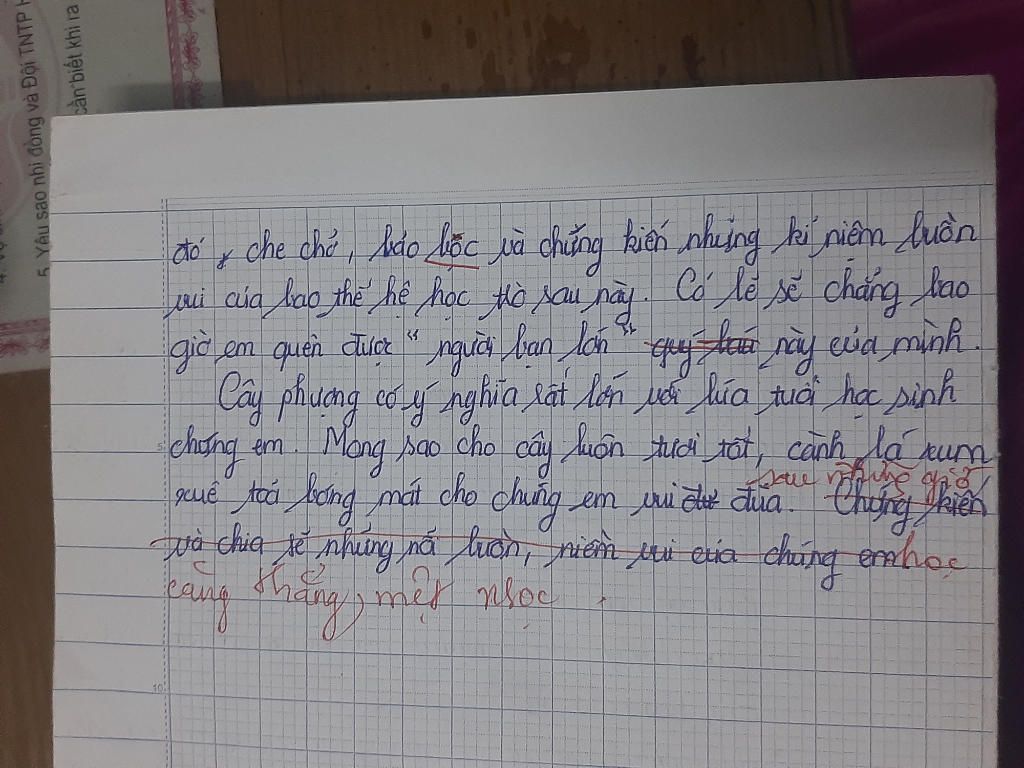 5. Yêu sao nhi đồng và Đội TNTP H
cần biết khi ra
đó, che chở, bảo bọc và chứng kiến những kỉ niệm buồn
vui của bao thế hệ học trò sau này. Có lẽ sẽ chẳng bao
giờ em quên được "người bạn lớn" quý báu này của mình.
Cây phượng có ý nghĩa rất lớn với lứa tuổi học sinh
chúng em. Mong sao cho cây luôn tươi tốt, cành lá xum
sau những giờ
xuê toả bóng mát cho chúng em vui đùa. Chứng kiến
và chia sẻ những nỗi buồn, niềm vui của chúng em học
căng thẳng, mệt nhọc.
5
10